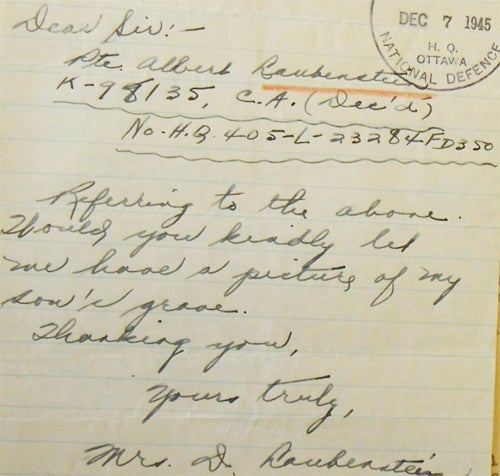 Dear Sir:-
DEC 7 1945
H. Q.
OTTAWA
NATIONAL DEFENCE
Pte. Albert Laubenstein
K-98135, C.A. (Dec'd)
No. H.Q. 405-L-23284 FD350
Referring to the above.
Would you kindly let
me have a picture of my
son's grave.
Thanking you,
Yours truly,
Mrs. D. Laubenstein